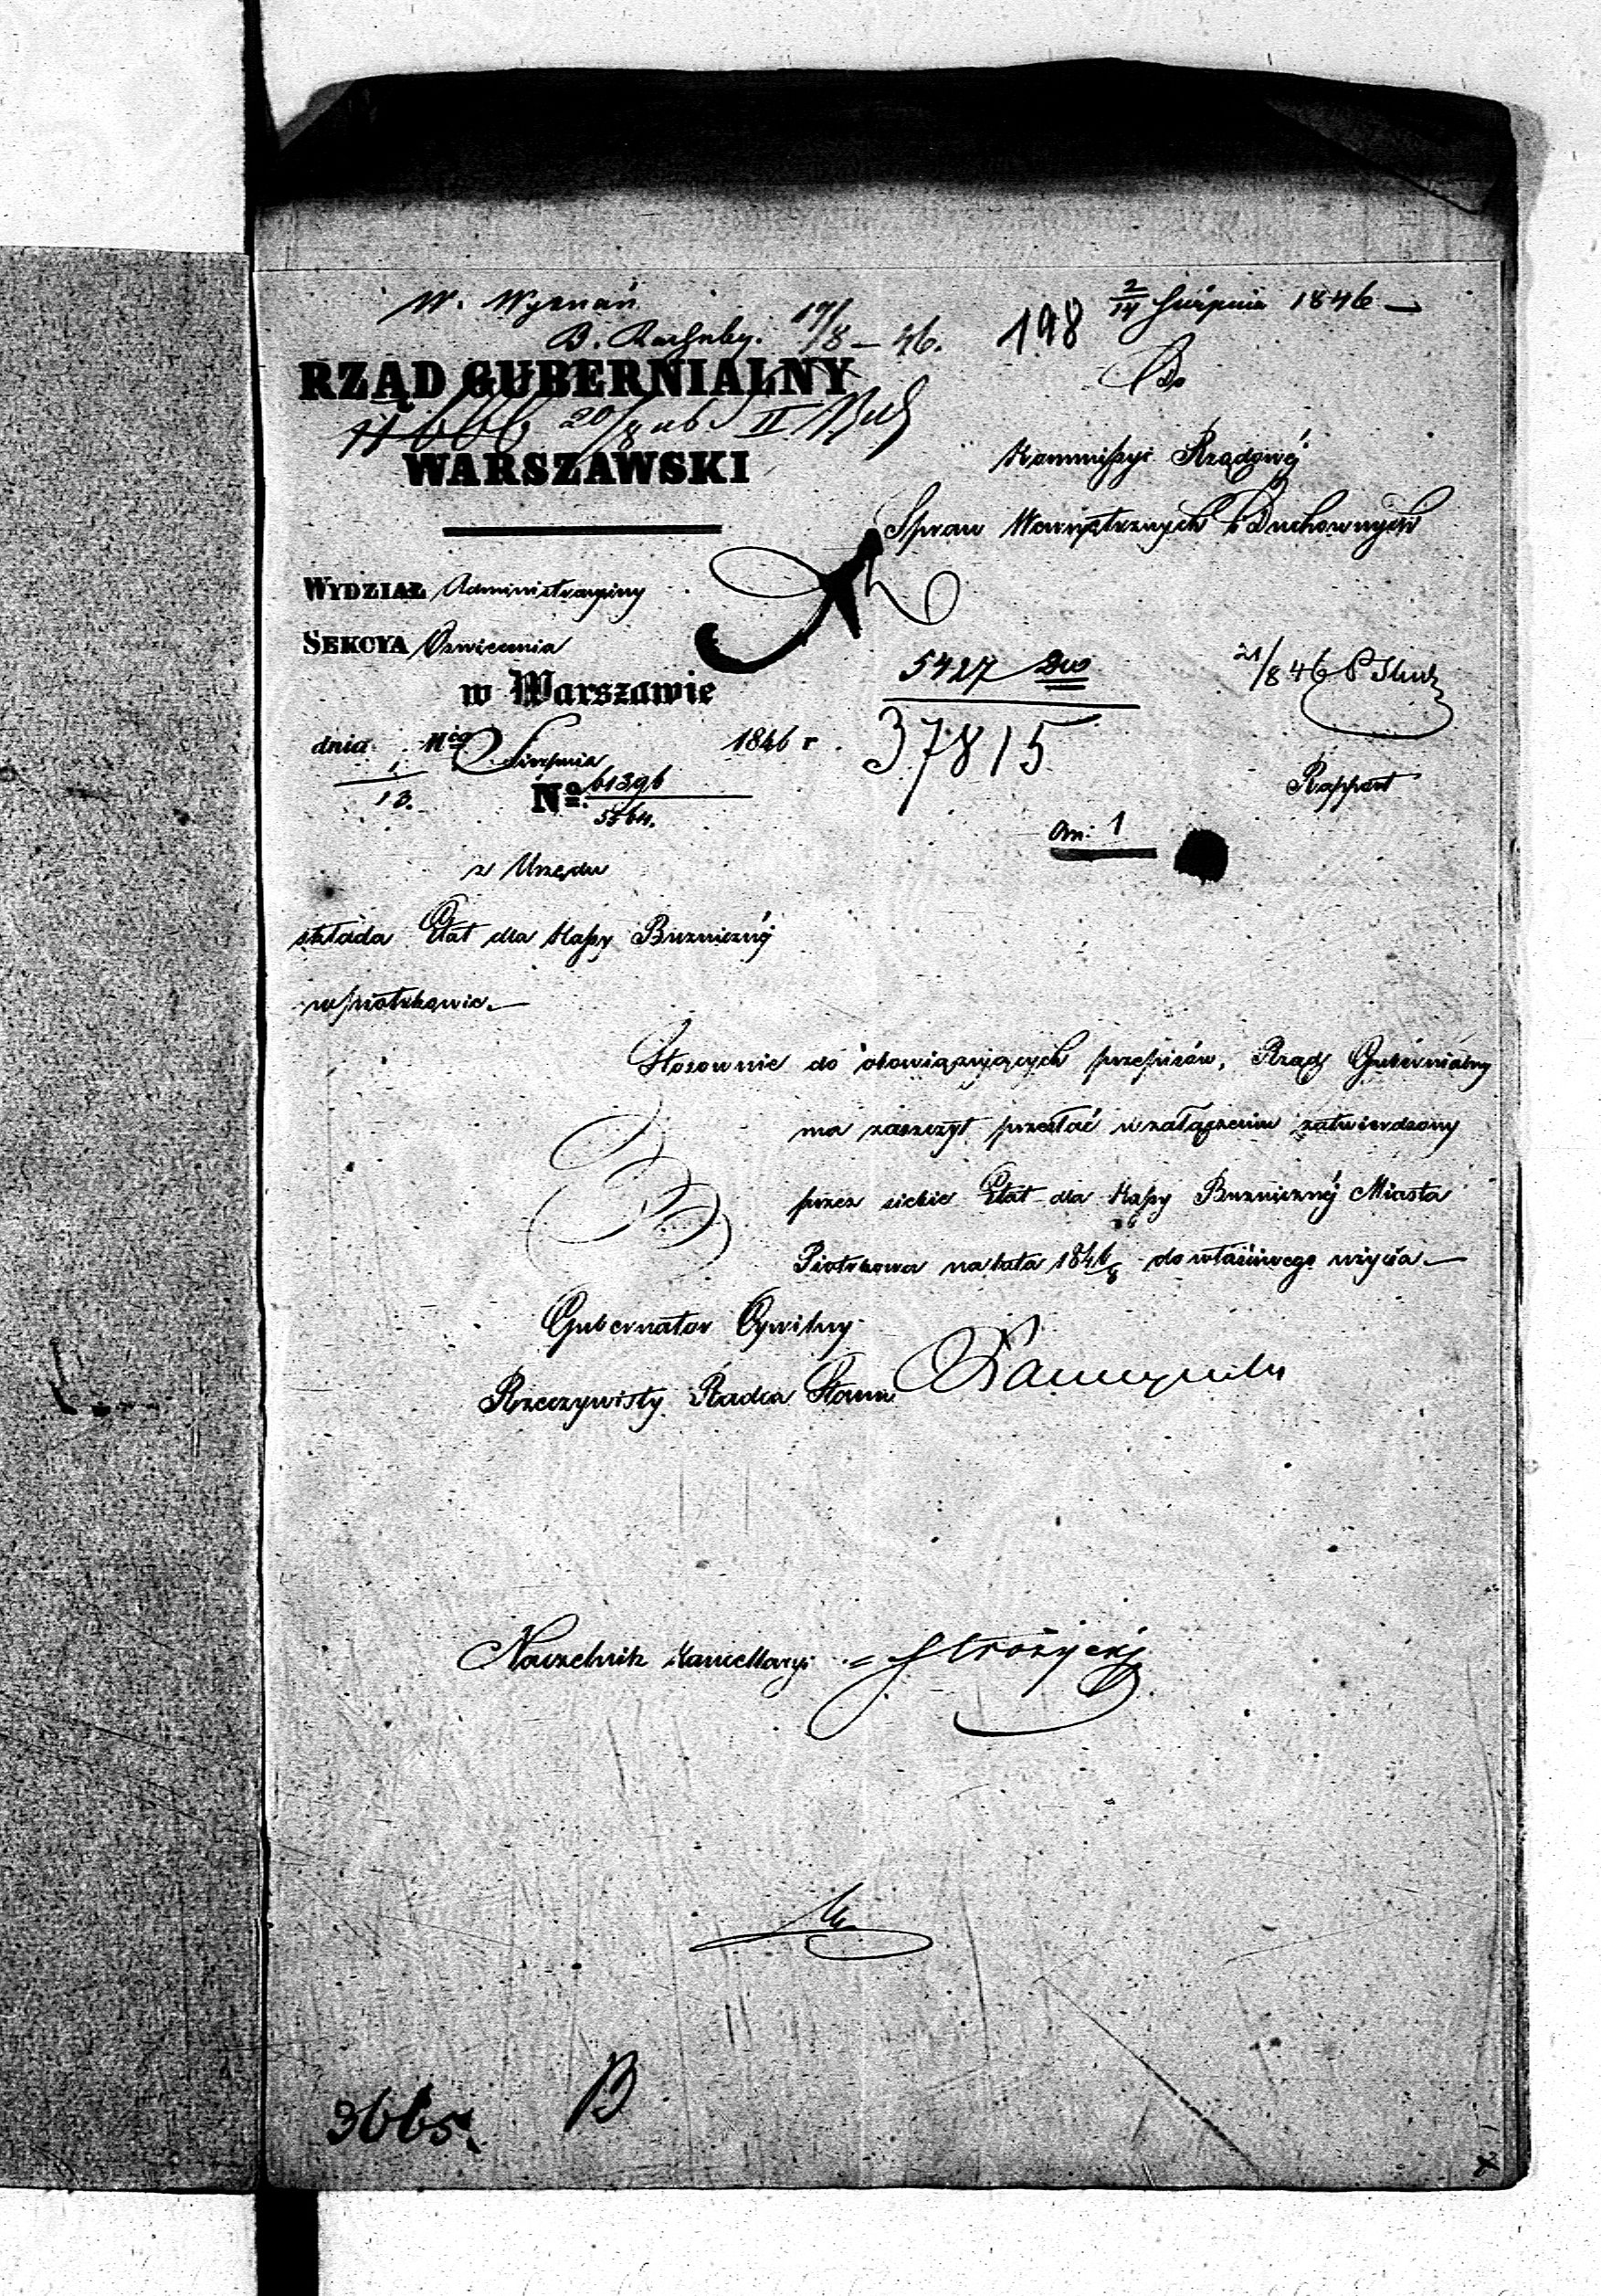 W. Wyznań
B. Rachuby. 17/8 – 46.
198
2/14 Sierpnia 1846 —
RZĄD GUBERNIALNY
20/8 46 II
WARSZAWSKI
Do
Kommissyi Rządowéj
Spraw Wewnętrznych i Duchownych
WYDZIAŁ Administracyiny
SEKCYA Oświecenia
w Warszawie
dnia 1/13. Mca Sierpnia 1846 r.
No. 61396/5564.
5427
37815
21/8 46
Rapport
An: 1
z Urzędu
składa Etat dla Kassy Bużnicznéj
w Piotrkowie. —
Stosownie do obowiązujących przepisów, Rząd Gubernialny
ma zaszczyt przesłać w załączeniu zatwierdzony
przez siebie Etat dla Kassy Bużnicznéj Miasta
Piotrkowa na lata 1846/8 do właściwego użycia. —
Gubernator Cywilny
Rzeczywisty Radca Stanu
Naczelnik Kancellaryi
3665.
B